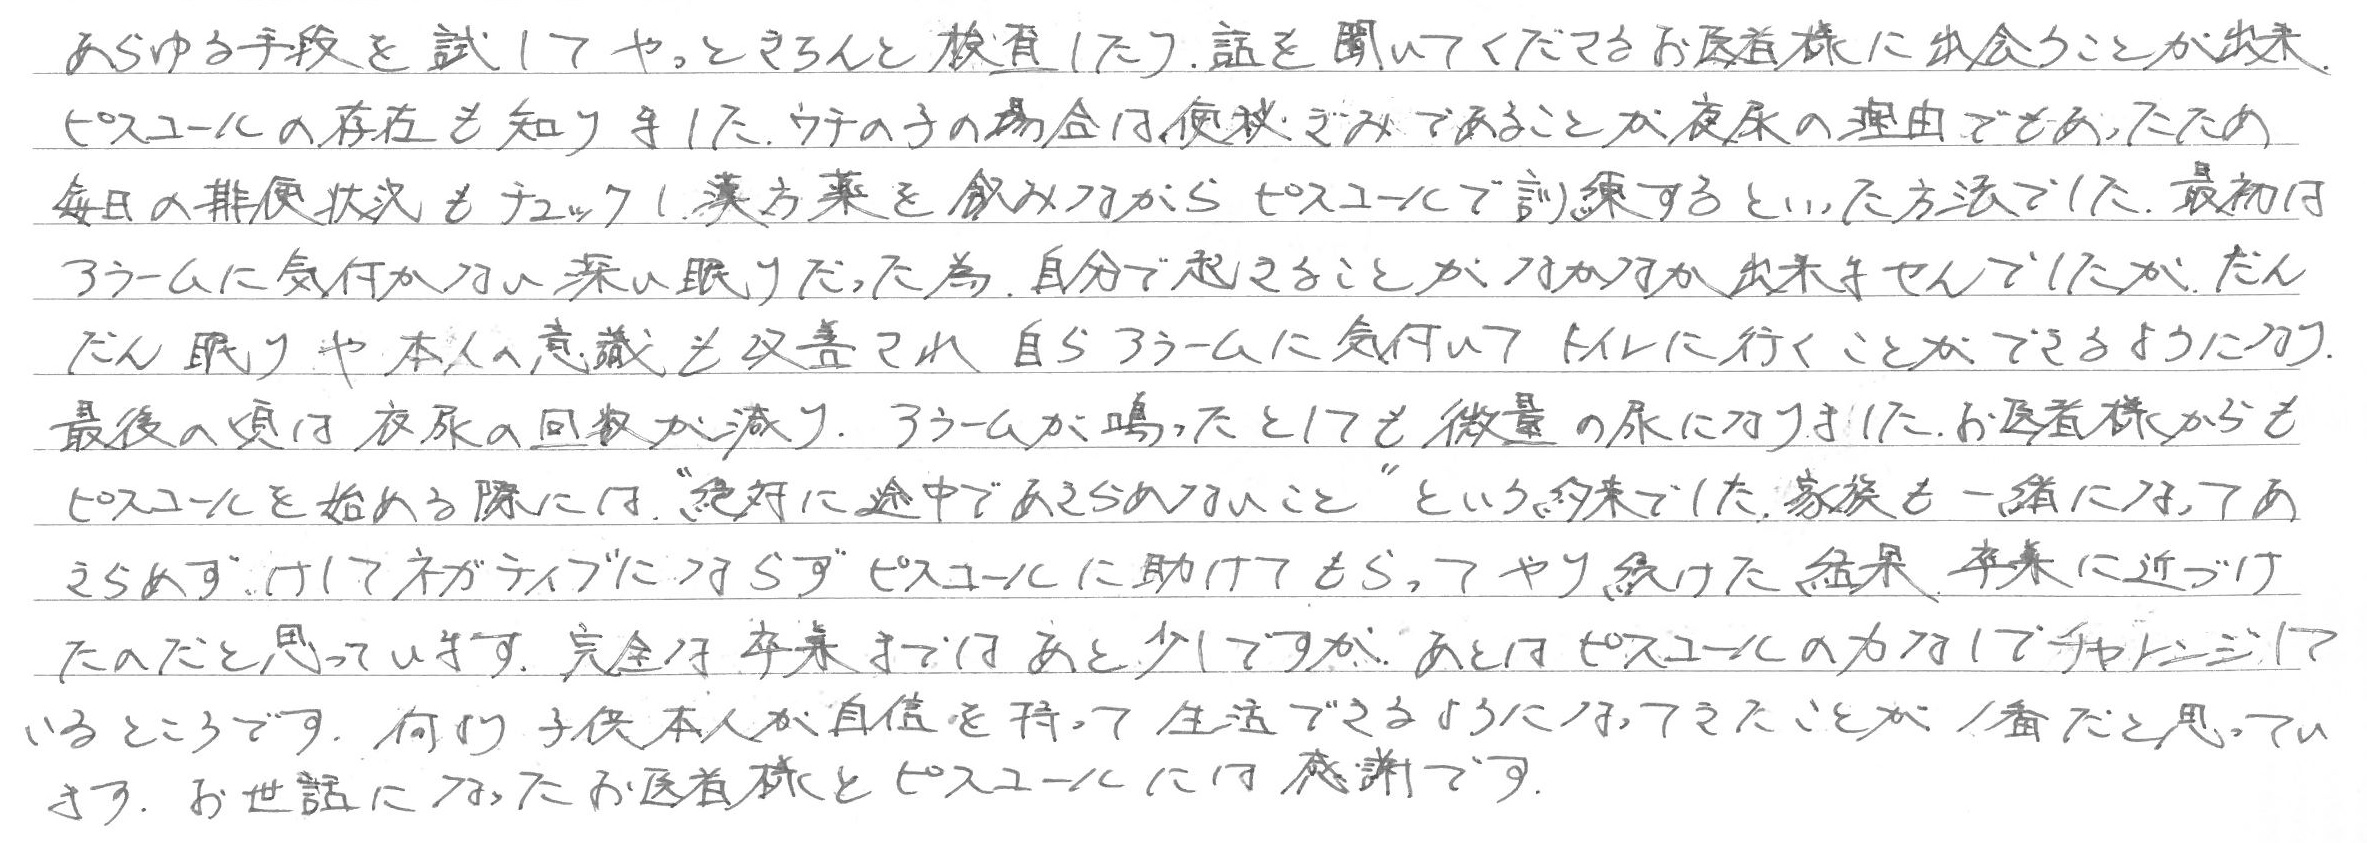 あらゆる手段を試してやっときちんと検査したり、話を聞いてくださるお医者様に出会うことが出来、
ピスコールの存在も知りました。ウチの子の場合は、便秘ぎみであることが夜尿の理由でもあったため
毎日の排便状況もチェックし、漢方薬を飲みながらピスコールで訓練するといった方法でした。最初は
アラームに気付かない深い眠りだった為、自分で起きることがなかなか出来ませんでしたが、だん
だん眠りや本人の意識も改善され自らアラームに気付いてトイレに行くことができるようになり、
最後の頃は夜尿の回数が減り、アラームが鳴ったとしても微量の尿になりました。お医者様からも
ピスコールを始める際には、“絶対に途中であきらめないこと”という約束でした。家族も一緒になってあ
きらめず、けしてネガティブにならずピスコールに助けてもらってやり続けた結果、卒業に近づけ
たのだと思っています。完全な卒業まではあと少しですが、あとはピスコールの力なしでチャレンジして
いるところです。何より子供本人が自信を持って生活できるようになってきたことが1番だと思ってい
ます。お世話になったお医者様とピスコールには感謝です。